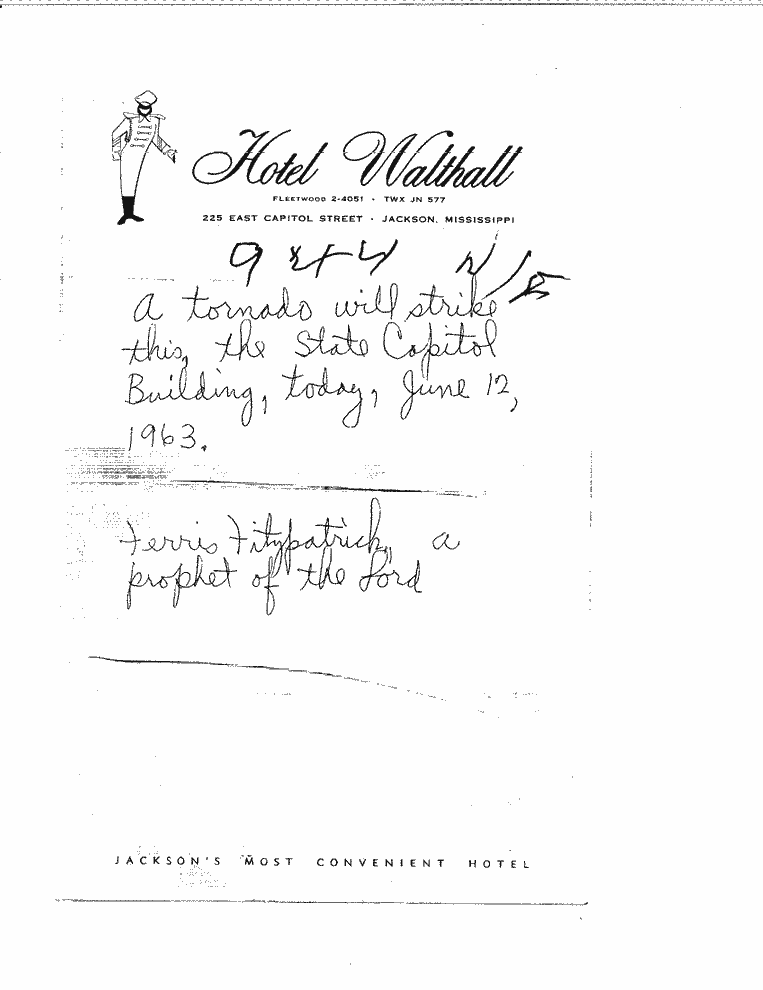 Hotel Walthall
FLEETWOOD 2-4051 · TWX JN 577
225 EAST CAPITOL STREET · JACKSON, MISSISSIPPI
A tornado will strike
this, the State Capitol
Building, today, June 12,
1963.
Ferris Fitzpatrick, a
prophet of the Lord
JACKSON'S MOST CONVENIENT HOTEL